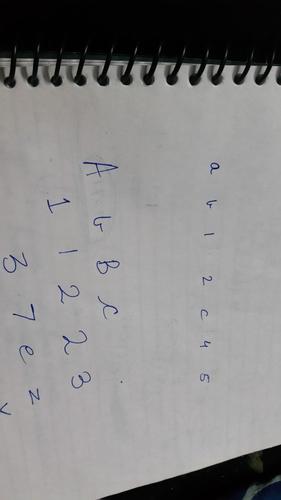 a b 1 2 c 4 5
A b B c
1 1 2 2 3
3 7 e z